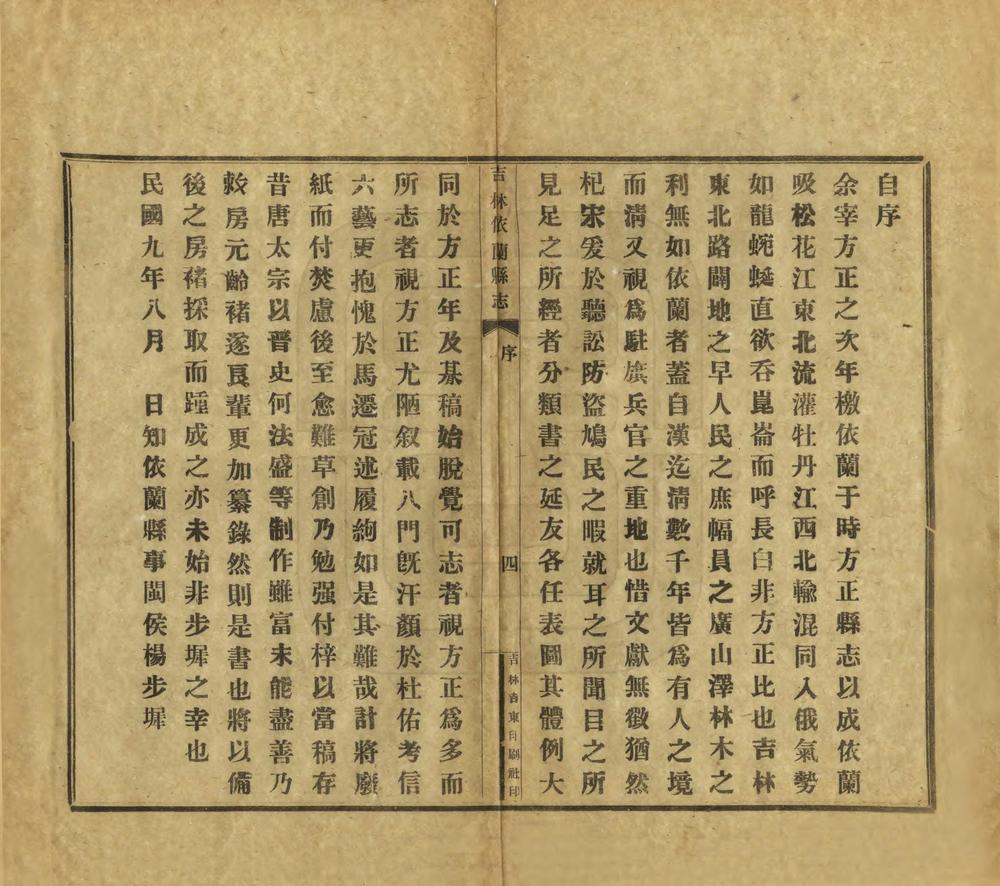 自序
余宰方正之次年檄依蘭于時方正縣志以成依蘭
吸松花江東北流灌牡丹江西北輸混同入俄氣勢
如龍蜿蜒直欲吞崑崙而呼長白非方正比也吉林
東北路闢地之早人民之庶幅員之廣山澤林木之
利無如依蘭者蓋自漢迄淸數千年皆爲有人之境
而淸又視爲駐旗兵官之重地也惜文獻無徵猶然
杞宋爰於聽訟防盜鳩民之暇就耳之所聞目之所
見足之所經者分類書之延友各任表圖其體例大
吉林依蘭縣志
序
四
吉林吉東印刷社印
同於方正年及朞稿始脫覺可志者視方正爲多而
所志者視方正尤陋叙載八門旣汗顏於杜佑考信
六藝更抱愧於馬遷冠述履絢如是其難哉計將廢
紙而付焚慮後至愈難草創乃勉强付梓以當稿存
昔唐太宗以晋史何法盛等制作雖富未能盡善乃
敕房元齡褚遂良輩更加纂錄然則是書也將以備
後之房褚採取而踵成之亦未始非步墀之幸也
民國九年八月　日知依蘭縣事閩侯楊步墀